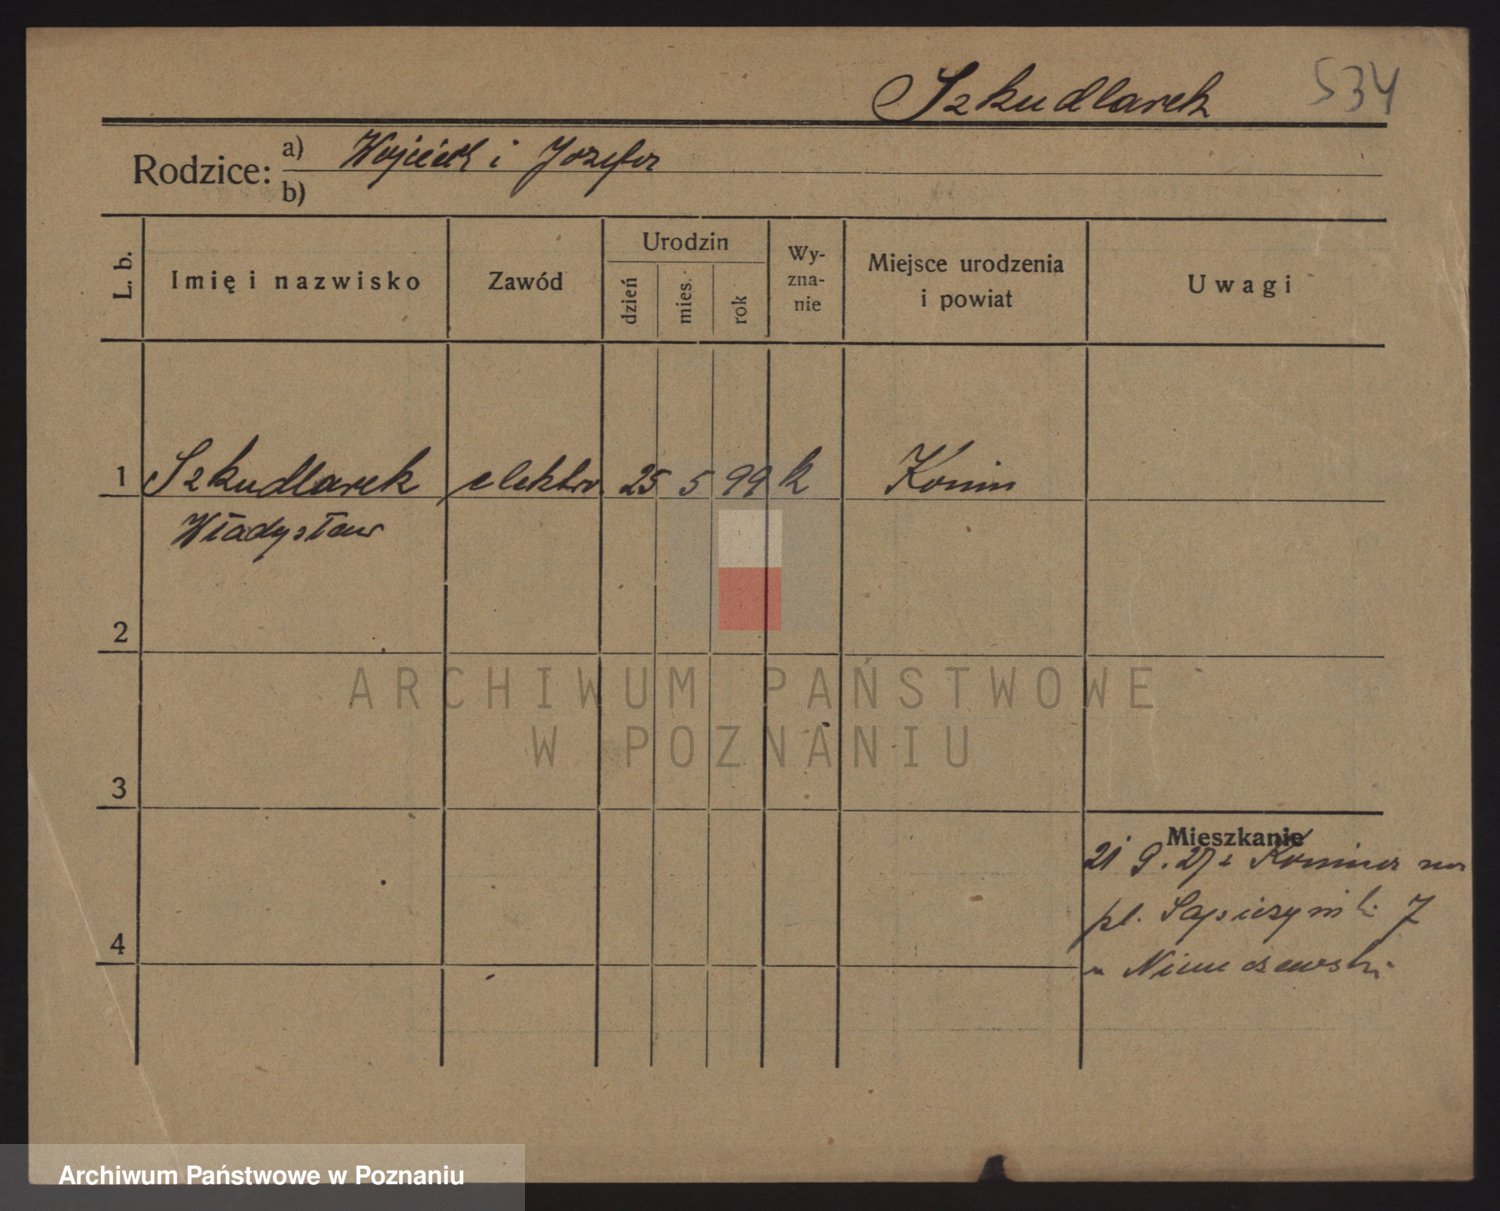 Szkudlarek 534
Rodzice: a) Wojciech i Józefa
b)
L. b.
Imię i nazwisko
Zawód
Urodzin
dzień
mies.
rok
Wy-
zna-
nie
Miejsce urodzenia
i powiat
Uwagi
1 Szkudlarek elektro 25 5 99 k Konin
Władysław
2
ARCHIWUM PAŃSTWOWE
W POZNANIU
3
Mieszkanie
21 9. 27 z Konina na
pl. Sapieżyński 7
u Niemczewski
4
Archiwum Państwowe w Poznaniu